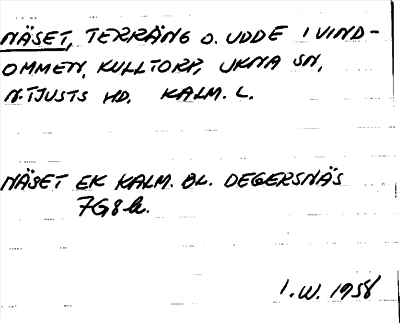 NÄSET, TERRÄNG O. UDDE I VIND-
OMMEN, KULLTORP, UKNA SN,
N. TJUSTS HD. KALM. L.
NÄSET EK KALM. BL. DEGERSNÄS
7G8b.
I.W. 1958